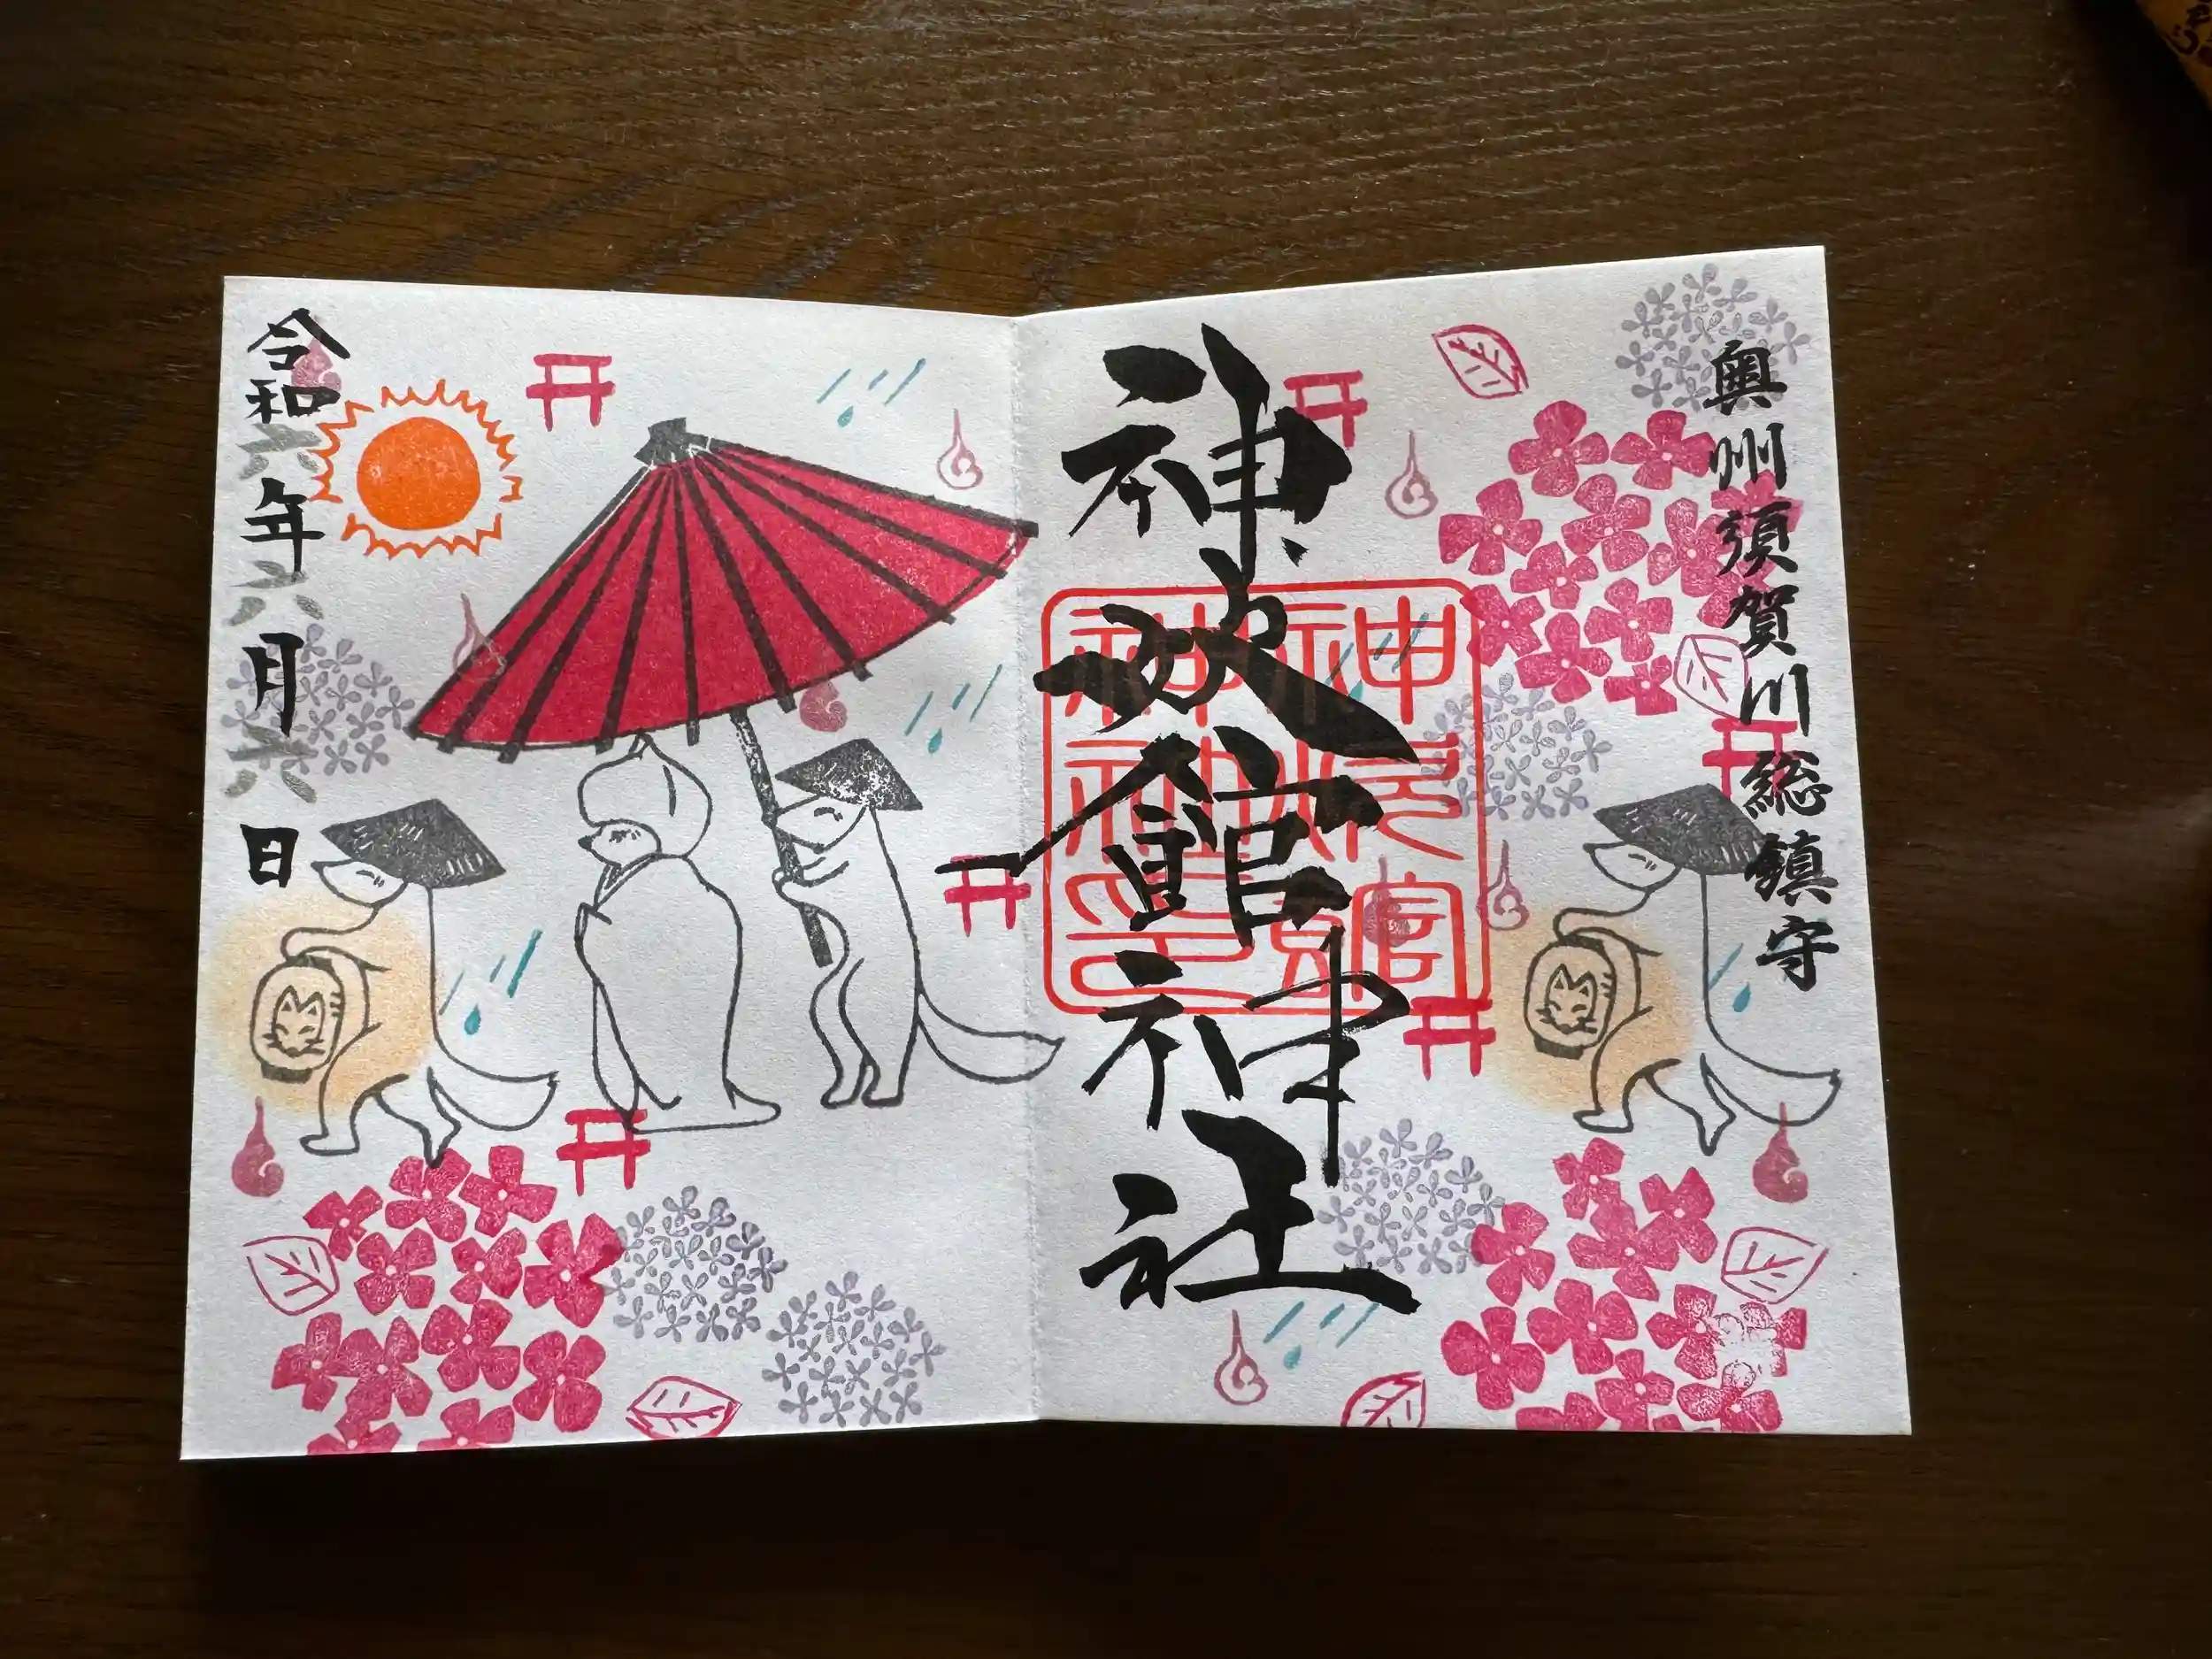 奥州須賀川総鎮守
神炊館神社
令和六年六月六日